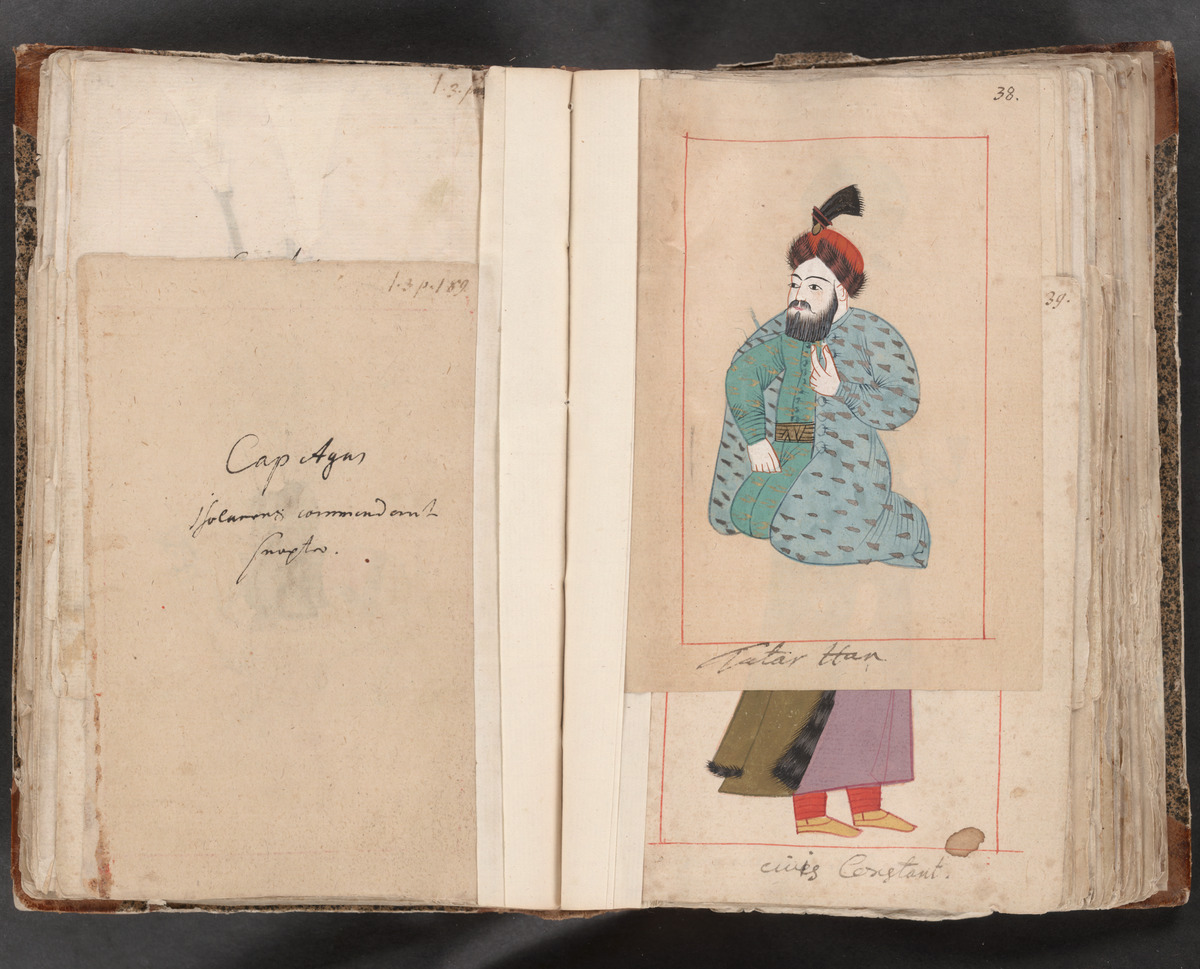 1.3.p
1.3.p.189
Cap Agas
commendant
38.
Tatar Han
39.
civis Constant.